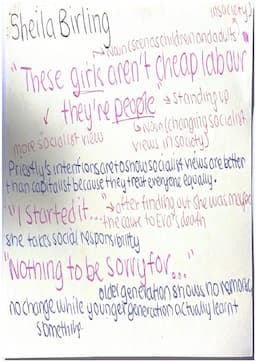 Sheila Birling
in society)
→ Noun (seen as children and adults
"These girls aren't cheap labour
they're people" → standing up
more socialist view
↳ Noun (changing socialist
views in society)
Priestly's intentions are to show socialist views are better
than capitalist because they treat everyone equally.
"I started it..." → after finding out she was maybe
the cause to Eva's death
she takes social responsibility
"Nothing to be sorry for..."
older generation shows no remorse,
no change while younger generation actually learnt
something.